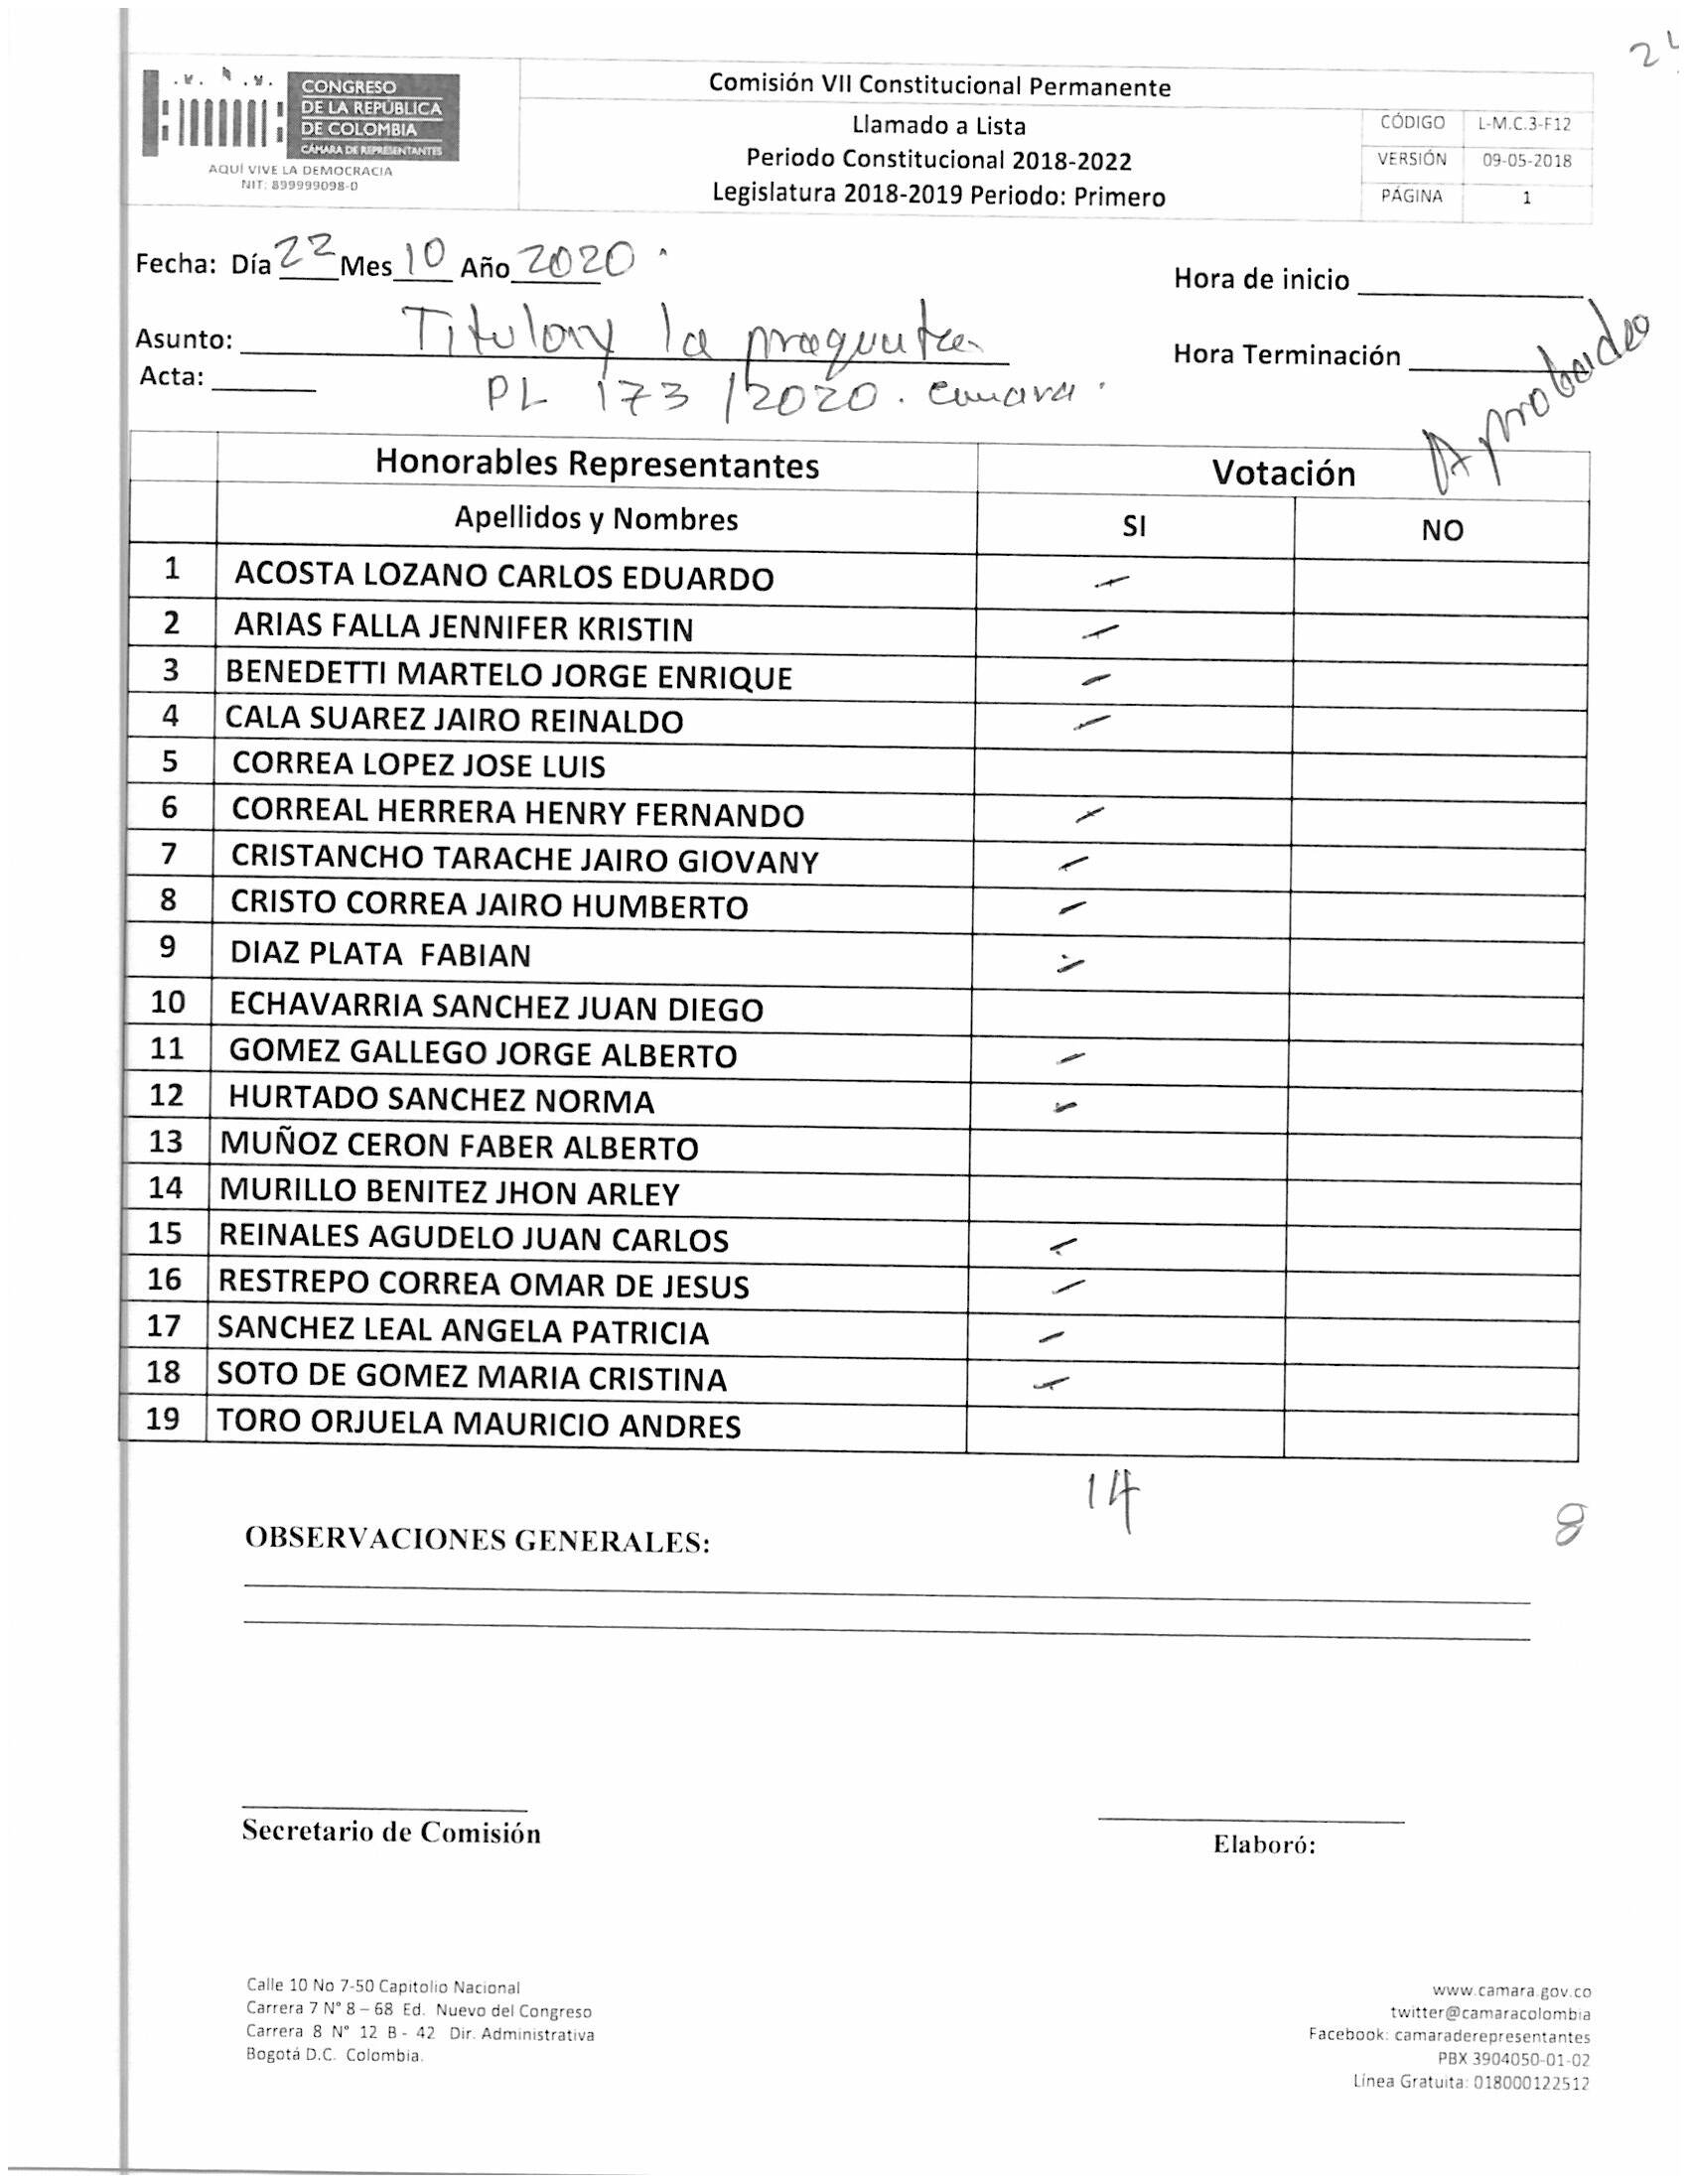 CONGRESO
DE LA REPÚBLICA
DE COLOMBIA
CÁMARA DE REPRESENTANTES
AQUÍ VIVE LA DEMOCRACIA
NIT: 899999098-0
Comisión VII Constitucional Permanente
Llamado a Lista
Periodo Constitucional 2018-2022
Legislatura 2018-2019 Periodo: Primero
CÓDIGO L-M.C.3-F12
VERSIÓN 09-05-2018
PÁGINA 1
Fecha: Día 22 Mes 10 Año 2020
Hora de inicio
Asunto: Titulo y la pregunta
Hora Terminación
Acta: PL 173/2020. Camara.
Aprobado
Honorables Representantes Votación
Apellidos y Nombres SI NO
1 ACOSTA LOZANO CARLOS EDUARDO
2 ARIAS FALLA JENNIFER KRISTIN
3 BENEDETTI MARTELO JORGE ENRIQUE
4 CALA SUAREZ JAIRO REINALDO
5 CORREA LOPEZ JOSE LUIS
6 CORREAL HERRERA HENRY FERNANDO
7 CRISTANCHO TARACHE JAIRO GIOVANY
8 CRISTO CORREA JAIRO HUMBERTO
9 DIAZ PLATA FABIAN
10 ECHAVARRIA SANCHEZ JUAN DIEGO
11 GOMEZ GALLEGO JORGE ALBERTO
12 HURTADO SANCHEZ NORMA
13 MUÑOZ CERON FABER ALBERTO
14 MURILLO BENITEZ JHON ARLEY
15 REINALES AGUDELO JUAN CARLOS
16 RESTREPO CORREA OMAR DE JESUS
17 SANCHEZ LEAL ANGELA PATRICIA
18 SOTO DE GOMEZ MARIA CRISTINA
19 TORO ORJUELA MAURICIO ANDRES
14
8
OBSERVACIONES GENERALES:
Secretario de Comisión
Elaboró:
Calle 10 No 7-50 Capitolio Nacional
Carrera 7 N° 8 – 68 Ed. Nuevo del Congreso
Carrera 8 N° 12 B - 42 Dir. Administrativa
Bogotá D.C. Colombia.
www.camara.gov.co
twitter@camaracolombia
Facebook: camaraderepresentantes
PBX 3904050-01-02
Línea Gratuita: 018000122512